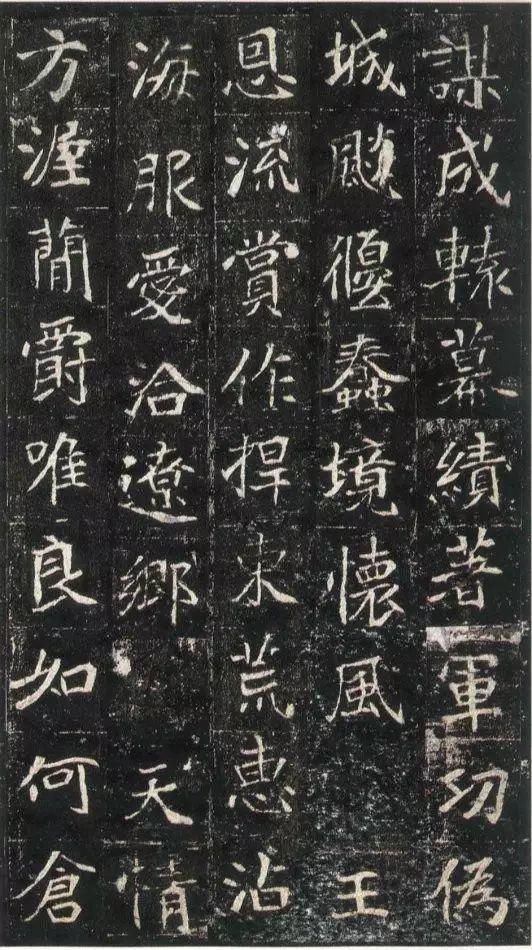 謀成轅幕績著軍功偽
城偃蠢境懷風 王
恩流賞作捍東荒惠沾
海服愛洽遼鄉 天情
方渥蕑爵唯良如何倉